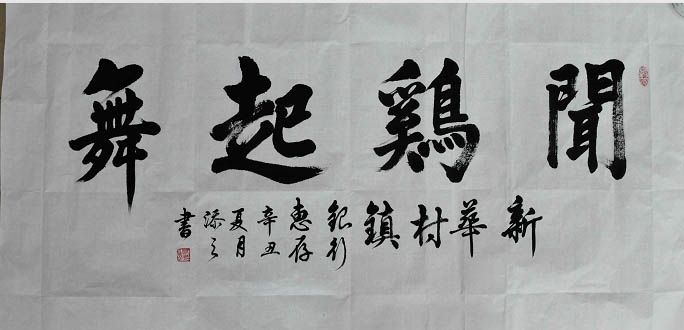 聞鷄起舞
新華村鎮
銀行
惠存
辛丑
夏月
添之
書